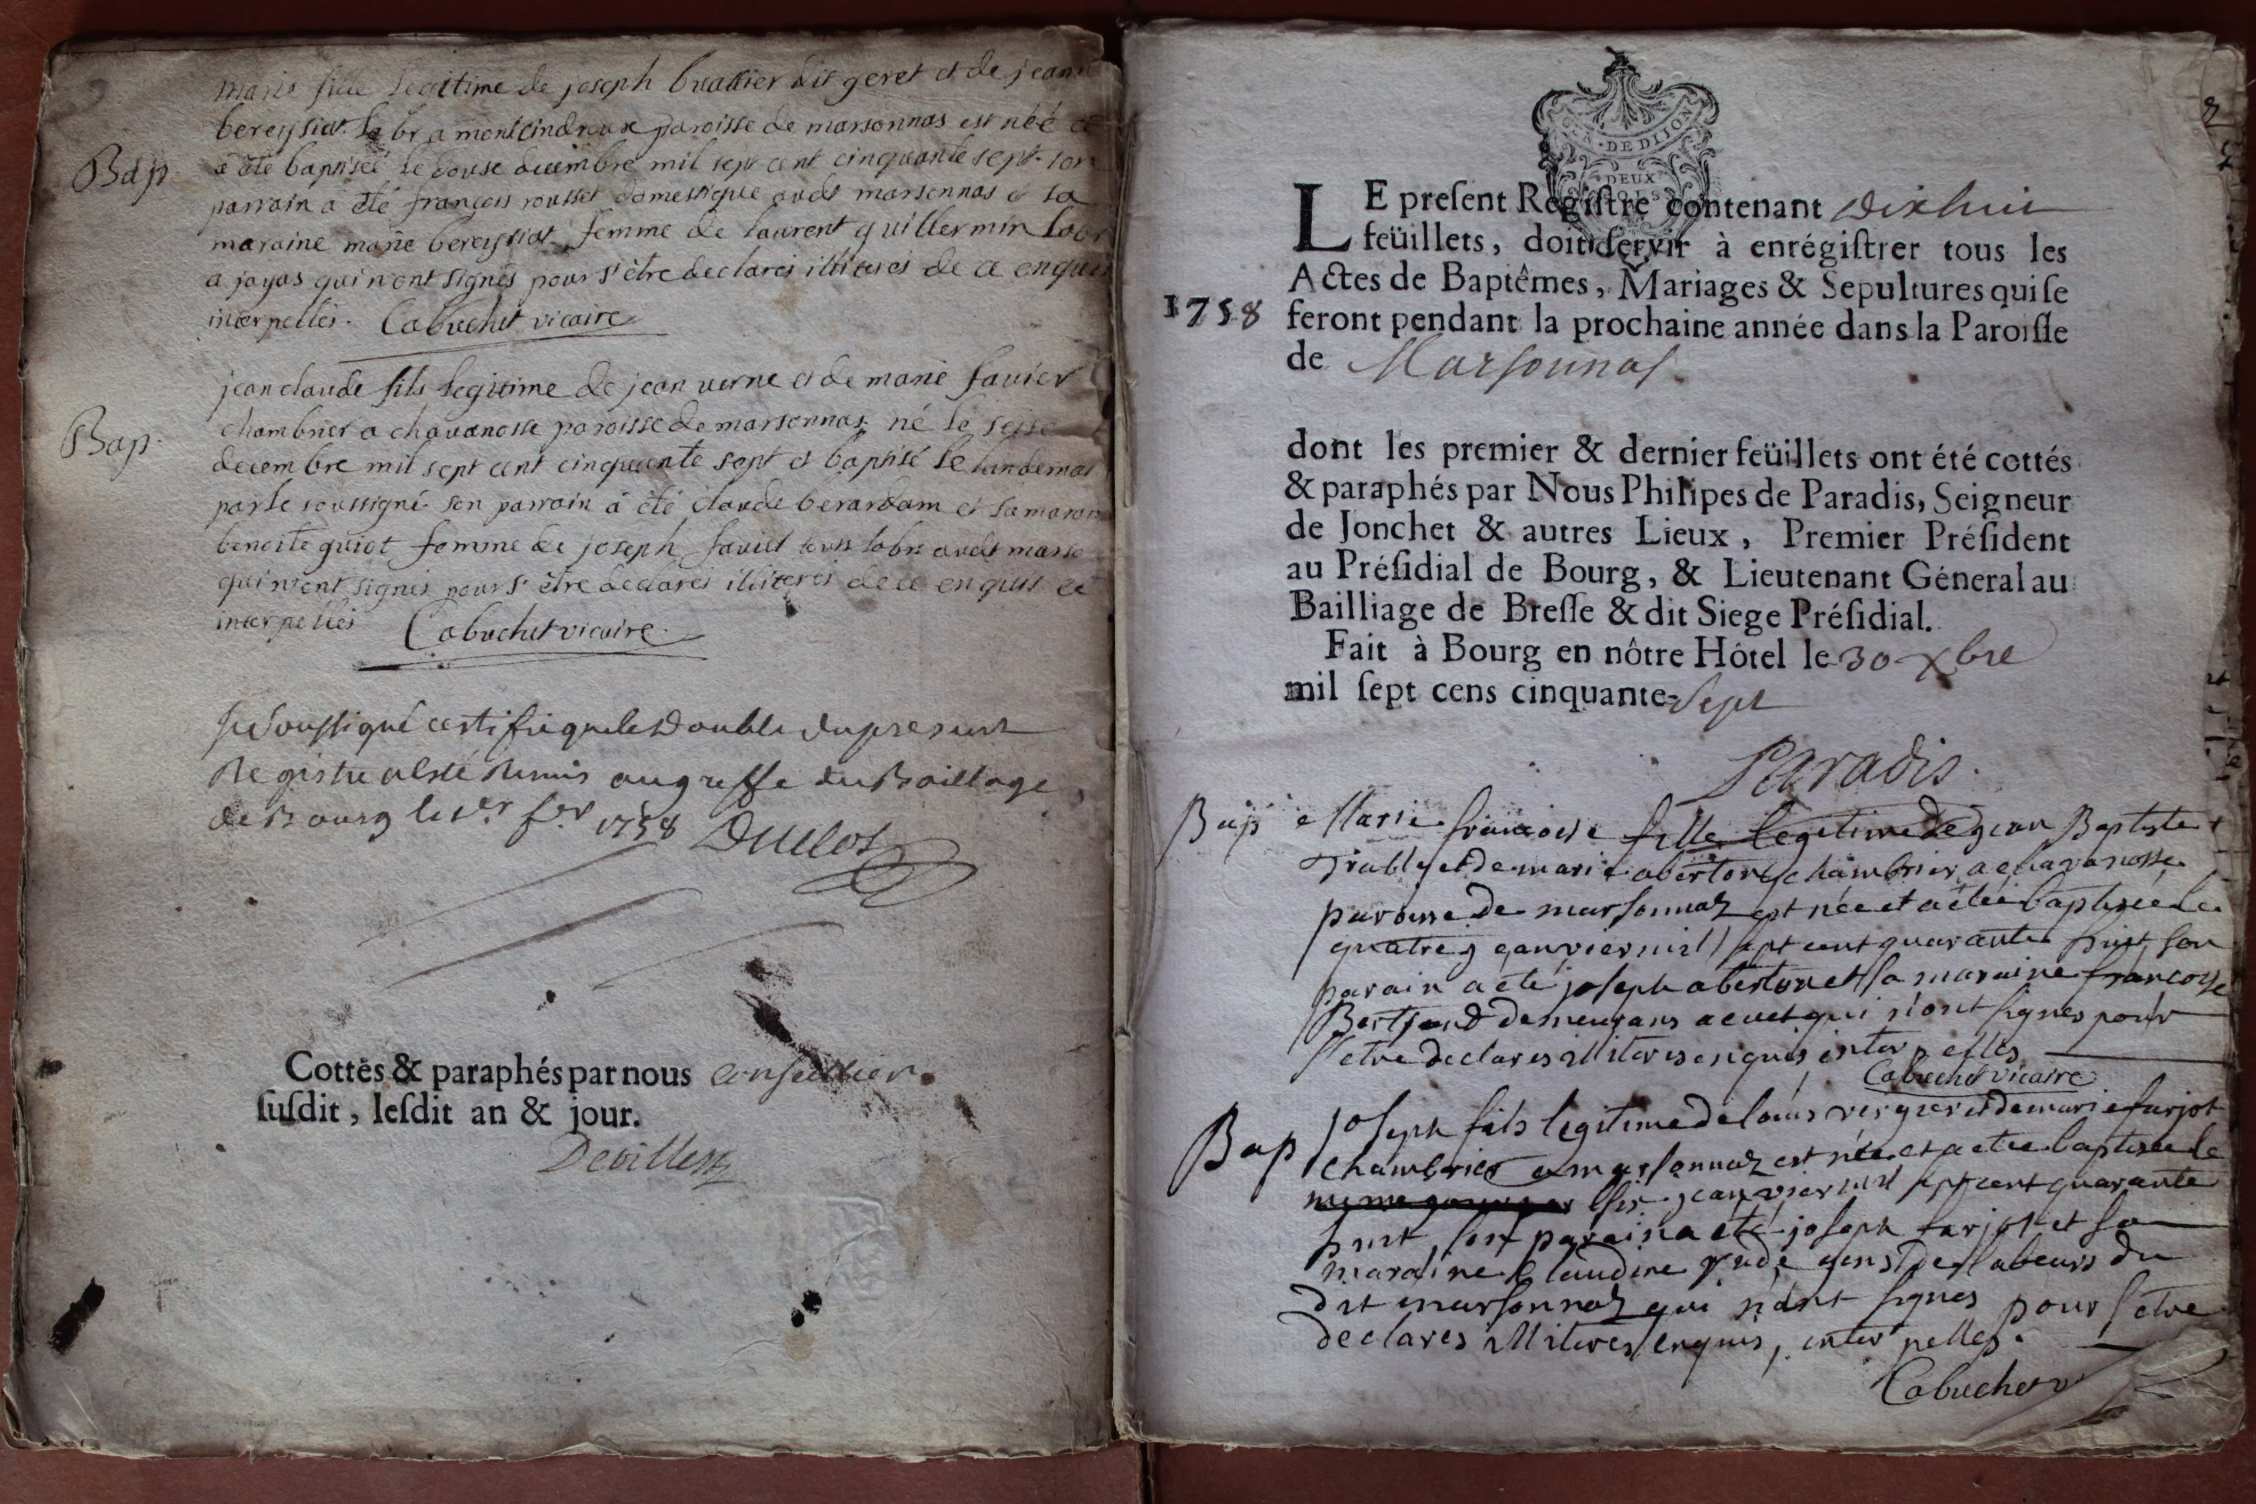 marie fille legitime de joseph buattier dit geret et de jeanne
bereysiat labr a montcindroux paroisse de marsonnas est néé et
Bap
a été baptiseé le douse decembre mil sept cent cinquante sept son
parrain a été françois rousset domestique audt marsonnas et sa
maraine marie bereysiat femme de laurent guillermin labr
a jayas qui n'ont signés pour s'être declarés illiterés de ce enquis
interpellés. Cabuchet vicaire
jean claude fils legitime de jean verne et de marie favier
chambrier a chavanosse paroisse de marsonnas né le seise
Bap.
decembre mil sept cent cinquante sept et baptisé le landemain
par le soussigné son parrain a été claude berardam et sa maraine
benoite guiot femme de joseph favier tous labrs audt marso
qui n'ont signés pour s'être declarés illiterés de ce enquis et
interpellés Cabuchet vicaire.
Je soussigné certifie que le Double du present
Registre a esté Remis au greffe du Bailliage
de Bourg le 1er fer 1758 Duclos
Cottés & paraphés par nous conseillier
susdit, lesdit an & jour.
Devilles
GEN. DE DIJON
DEUX
SOLS
LE present Registre contenant dixhuit
feüillets, doit servir à enrégistrer tous les
Actes de Baptêmes, Mariages & Sepultures qui se
1758
feront pendant la prochaine année dans la Paroisse
de Marsonnas
dont les premier & dernier feüillets ont été cottés
& paraphés par Nous Philipes de Paradis, Seigneur
de Jonchet & autres Lieux, Premier Président
au Présidial de Bourg, & Lieutenant Géneral au
Bailliage de Bresse & dit Siege Présidial.
Fait à Bourg en nôtre Hôtel le 30 Xbre
mil sept cens cinquante-sept
Paradis.
Bap Marie francoise fille legitime de jean Baptiste
trably et de marie aberton chambrier a chavanosse
paroisse de marsonnaz est née et a étée baptisée le
quatre janvier mil sept cent quarante huit, son
parain a eté joseph aberton et sa maraine francoise
Bertrand demeurans a cuet qui n'ont signes pour
s'etre declares illiteres enquis inter pelles
Cabuchet vicaire
Bap joseph fils legitime de louis verguet et de marie farjot
chambrier a marsonnaz est née et a etee baptisée le
six janvier mil sept cent quarante
huit, son parain a eté joseph farjot et sa
maraine Claudine gens de labeurs du
dit marsonnaz qui n'ont signes pour s'etre
declares illiteres enquis, inter pelles.
Cabuchet v